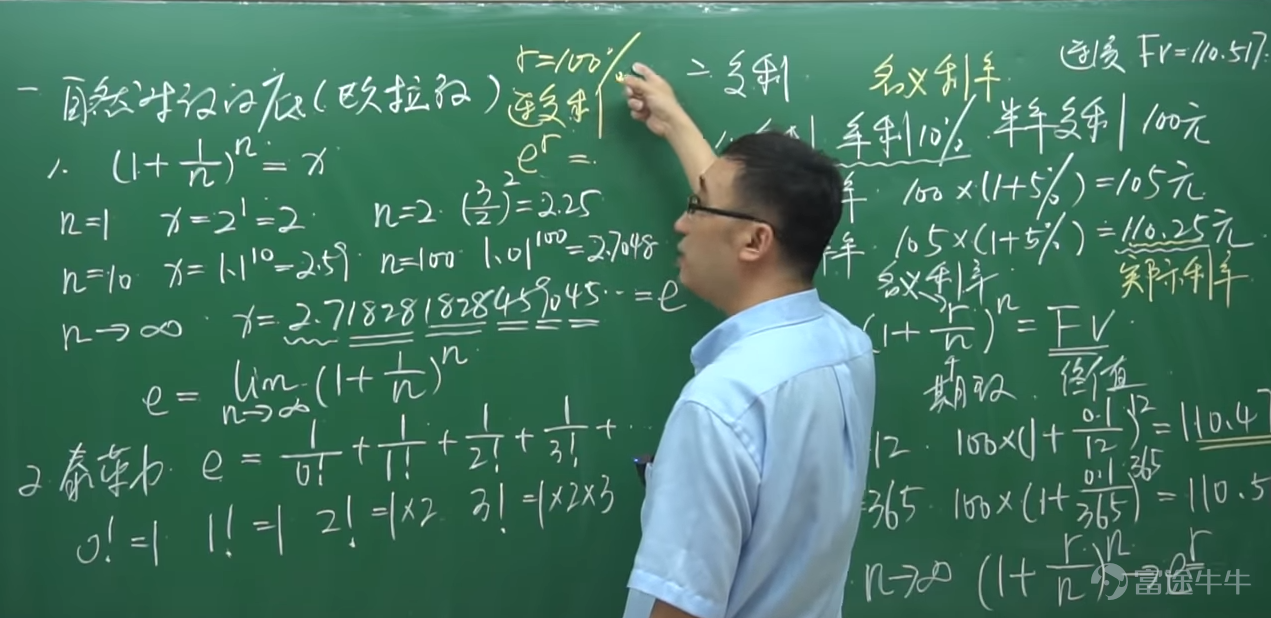 一 自然对数的底(欧拉数)
1. (1+1/n)^n=x
n=1 x=2^1=2 n=2 (3/2)^2=2.25
n=10 x=1.1^10=2.59 n=100 1.01^100=2.7048
n→∞ x=2.718281828459045…=e
e=lim n→∞ (1+1/n)^n
2. 泰勒 e=1/0!+1/1!+1/2!+1/3!+…
0!=1 1!=1 2!=1×2 3!=1×2×3
r=100%
连复利
e^r=
二 复利 名义利率
连复 FV=110.517
年利10% 半年复利 100元
年 100×(1+5%)=105元
年 105×(1+5%)=110.25元
名义利率 实际利率
(1+r/n)^n=FV
期数 终值
12 100×(1+0.1/12)^12=110.47
=365 100×(1+0.1/365)^365=110.5
n→∞ (1+r/n)^n→e^r
富途牛牛